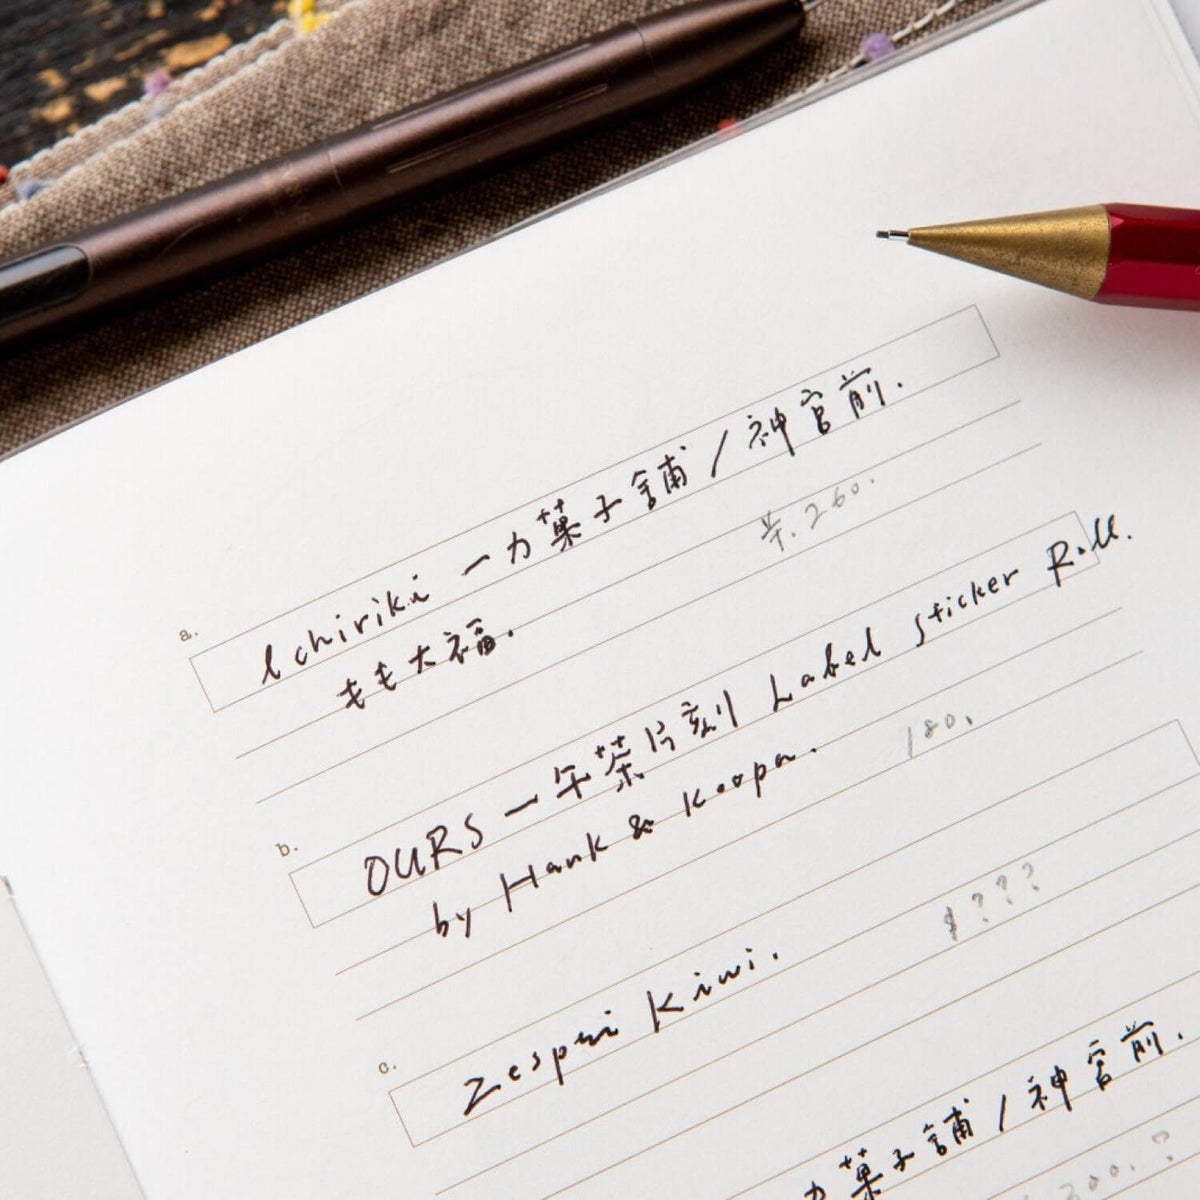 a.
Ichiriki 一力菓子舖/神宮前.
もも大福.
羊.260.
b.
OURS 一午茶片刻 Label Sticker Roll.
by Hank & Koopa.
180.
c.
Zespri Kiwi.
$???
力菓子舖/神宮前.
200.?